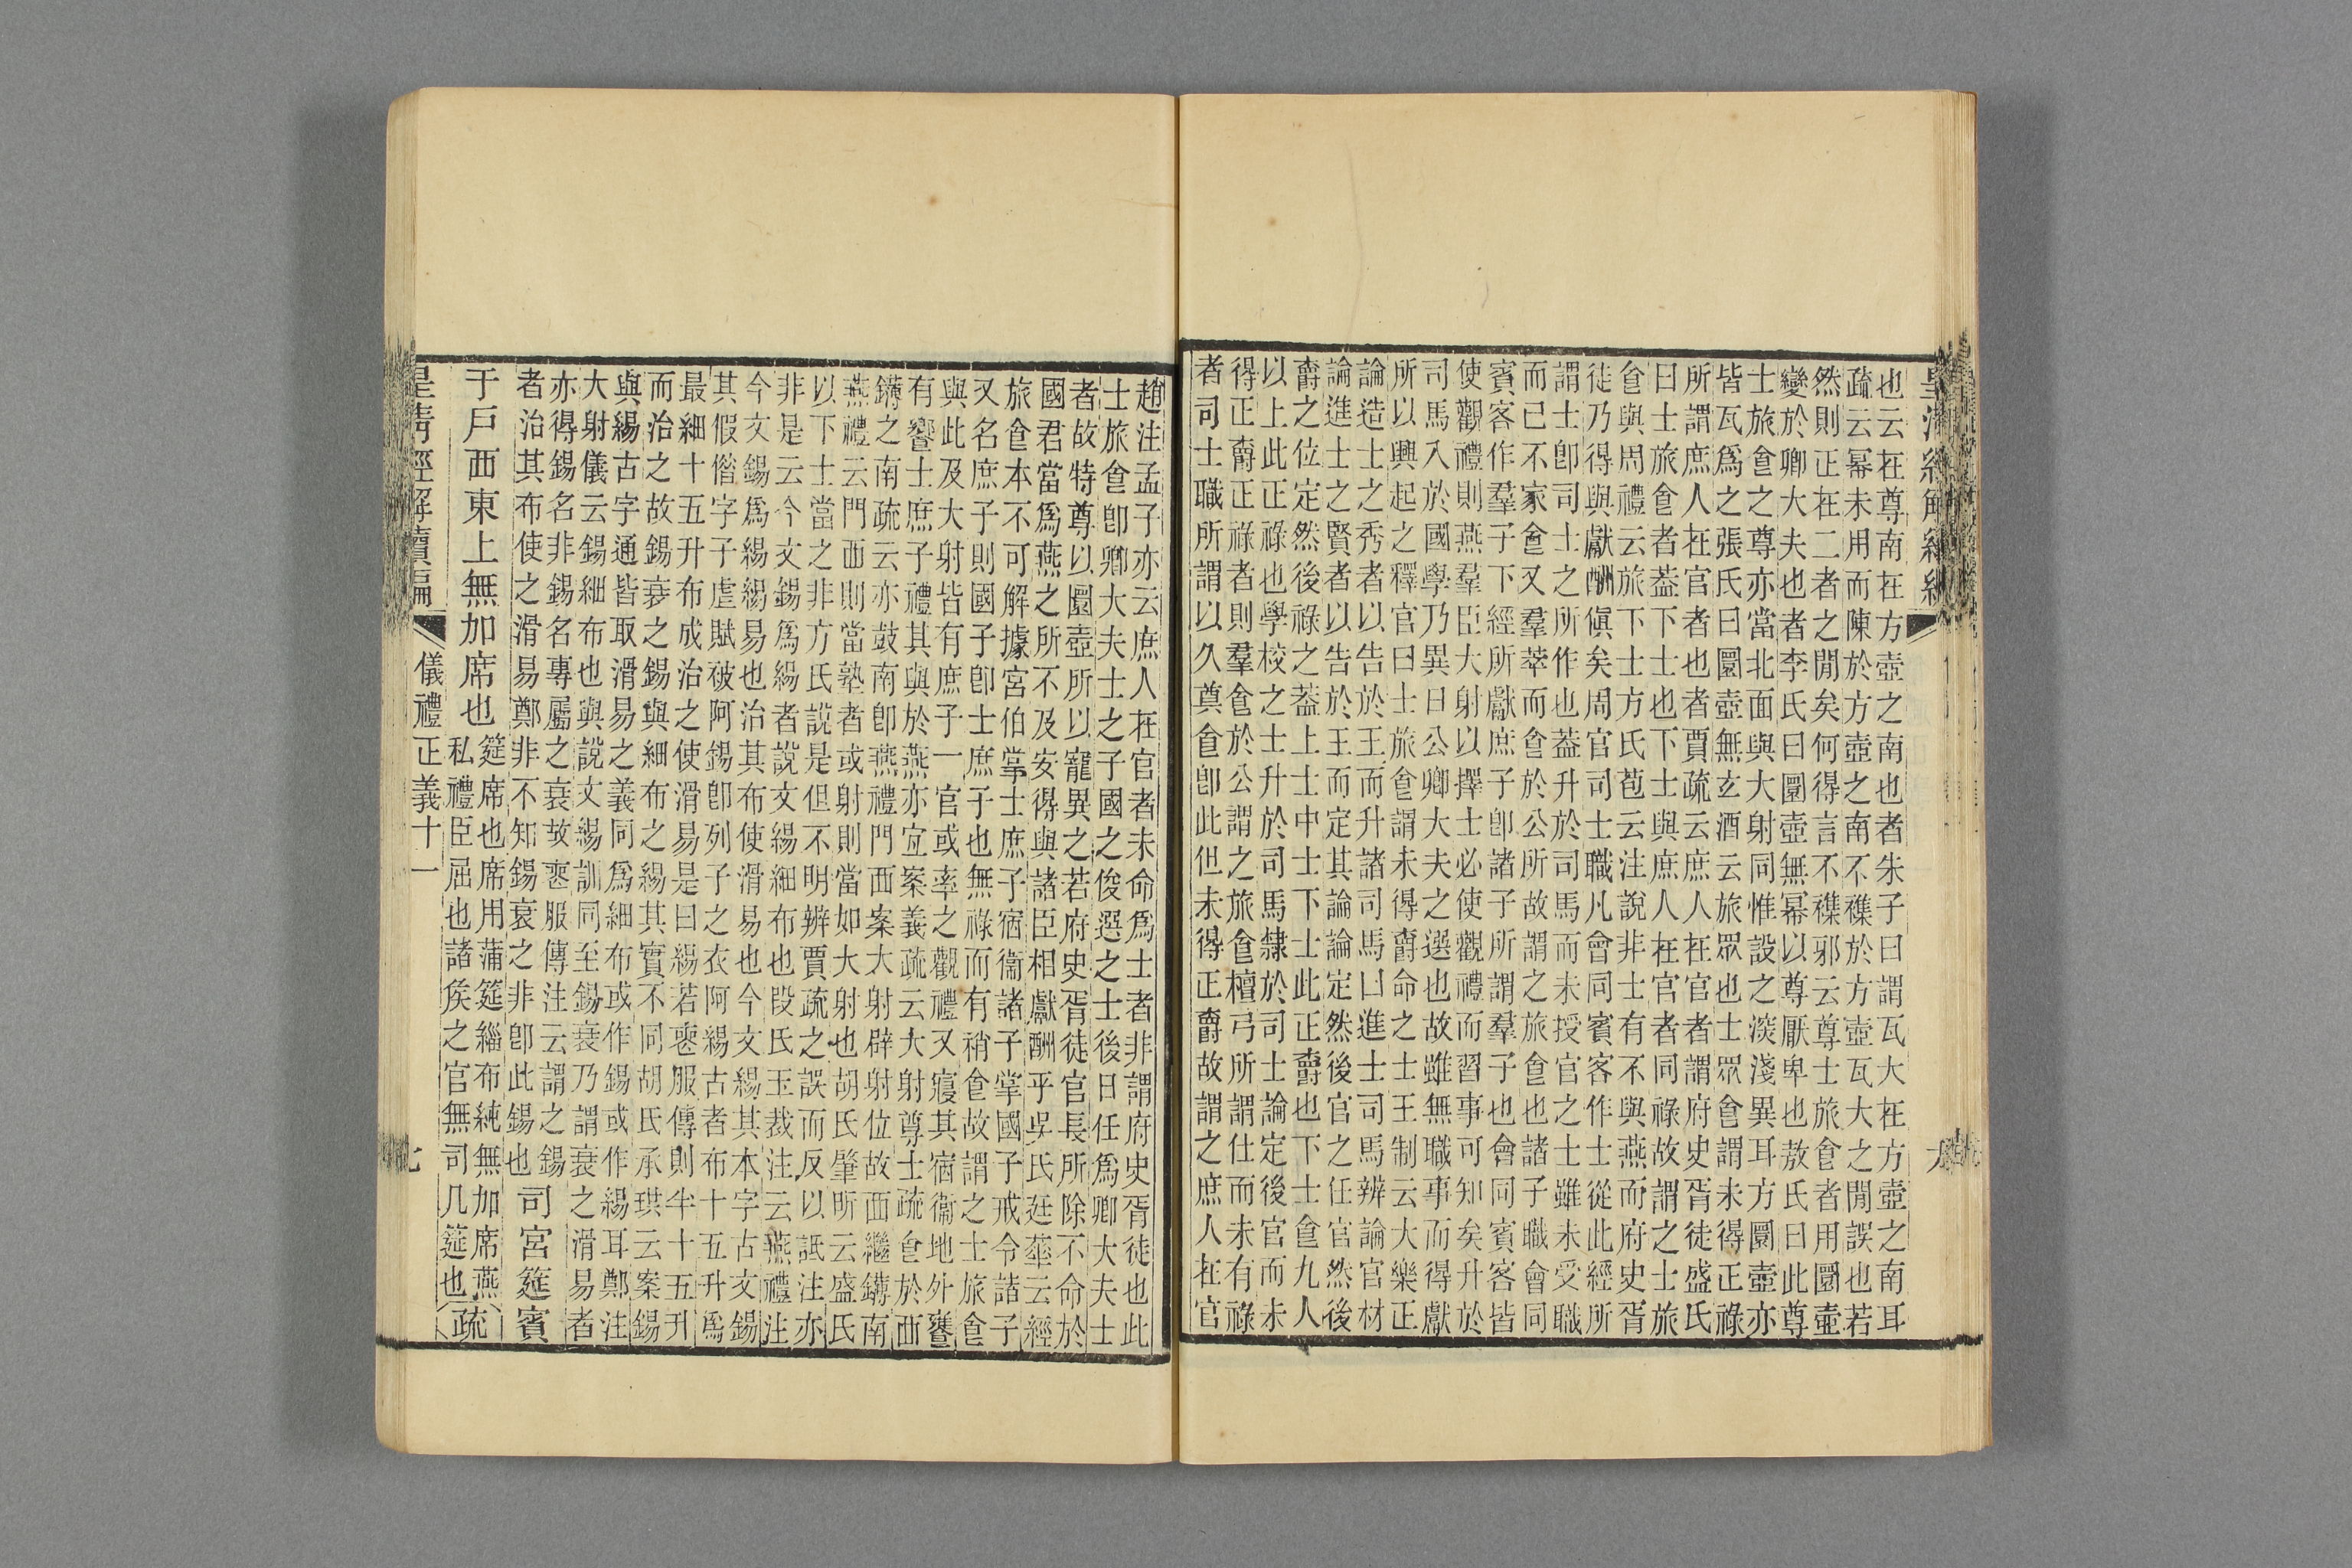 皇清經解續編
也云在尊南在方壺之南也者朱子曰謂瓦大在方壺之南耳
疏云冪未用而陳於方壺之南不襍於方壺瓦大之閒誤也若
然則正在二者之閒矣何得言不襍邪云尊士旅食者用圜壺
變於卿大夫也者李氏曰圜壺無冪以尊厭卑也敖氏曰此尊
士旅食之尊亦當北面與大射同惟設之淡淺異耳方圜壺亦
皆瓦爲之張氏曰圜壺無玄酒云旅眾也士眾食謂未得正祿
所謂庶人在官者也者賈疏云庶人在官者謂府史胥徒盛氏
曰士旅食者葢下士也下士與庶人在官者同祿故謂之士旅
食與周禮云旅下士方氏苞云注說非士有不與燕而府史胥
徒乃得與獻酬傎矣周官司士職凡會同賓客作士從此經所
謂士卽司士之所作也葢升於司馬而未授官之士雖未受職
而已不家食又羣萃而食於公所故謂之旅食也諸子職會同
賓客作羣子下經所獻庶子卽諸子所謂羣子也會同賓客皆
使觀禮則燕羣臣大射以擇士必使觀禮而習事可知矣升於
司馬入於國學乃異日公卿大夫之選也故雖無職事而得獻
所以興起之釋官曰士旅食謂未得爵命之士王制云大樂正
論造士之秀者以告於王而升諸司馬曰進士司馬辨論官材
論進士之賢者以告於王而定其論論定然後官之任官然後
爵之位定然後祿之葢上士中士下士此正爵也下士食九人
以上此正祿也學校之士升於司馬隸於司士論定後官而未
得正爵正祿者則羣食於公謂之旅食檀弓所謂仕而未有祿
者司士職所謂以久奠食卽此但未得正爵故謂之庶人在官
趙注孟子亦云庶人在官者未命爲士者非謂府史胥徒也此
士旅食卽卿大夫士之子國之俊選之士後日任爲卿大夫士
者故特尊以圜壺所以寵異之若府史胥徒官長所除不命於
國君當爲燕之所不及安得與諸臣相獻酬乎吳氏廷華云經
旅食本不可解據宮伯掌士庶子宿衞諸子掌國子戒令諸子
又名庶子則國子卽士庶子也無祿而有稍食故謂之士旅食
與此及大射皆有庶子一官或率之觀禮又寢其宿衞地外饔
有饗士庶子禮其與於燕亦宜案義疏云大射尊士疏食於西
鑮之南疏云亦鼓南卽燕禮門西案大射辟射位故西繼鑮南
燕禮云門西則當塾者或射則當如大射也胡氏肇昕云盛氏
以下士當之非方氏說是但不明辨賈疏之誤而反以詆注亦
非是云今文錫爲緆者說文緆細布也段氏玉裁注云燕禮注
今文錫爲緆緆易也治其布使滑易也今文緆其本字古文錫
其假偕字子虛賦破阿錫卽列子之衣阿緆古者布十五升爲
最細十五升布成治之使滑易是曰緆若喪服傳則半十五升
而治之故錫衰之錫與細布之緆其實不同胡氏承珙云案錫
與緆古字通皆取滑易之義同爲細布或作錫或作緆耳鄭注
大射儀云錫細布也與說文緆訓同至錫衰乃謂衰之滑易者
亦得錫名非錫名專屬之衰故喪服傳注云謂之錫
者治其布使之滑易鄭非不知錫衰之非卽此錫也 司宮筵賓
于戶西東上無加席也 筵席也席用蒲筵緇布純無加席燕
私禮臣屈也諸侯之官無司几筵也 疏
皇清經解續編 儀禮正義十一